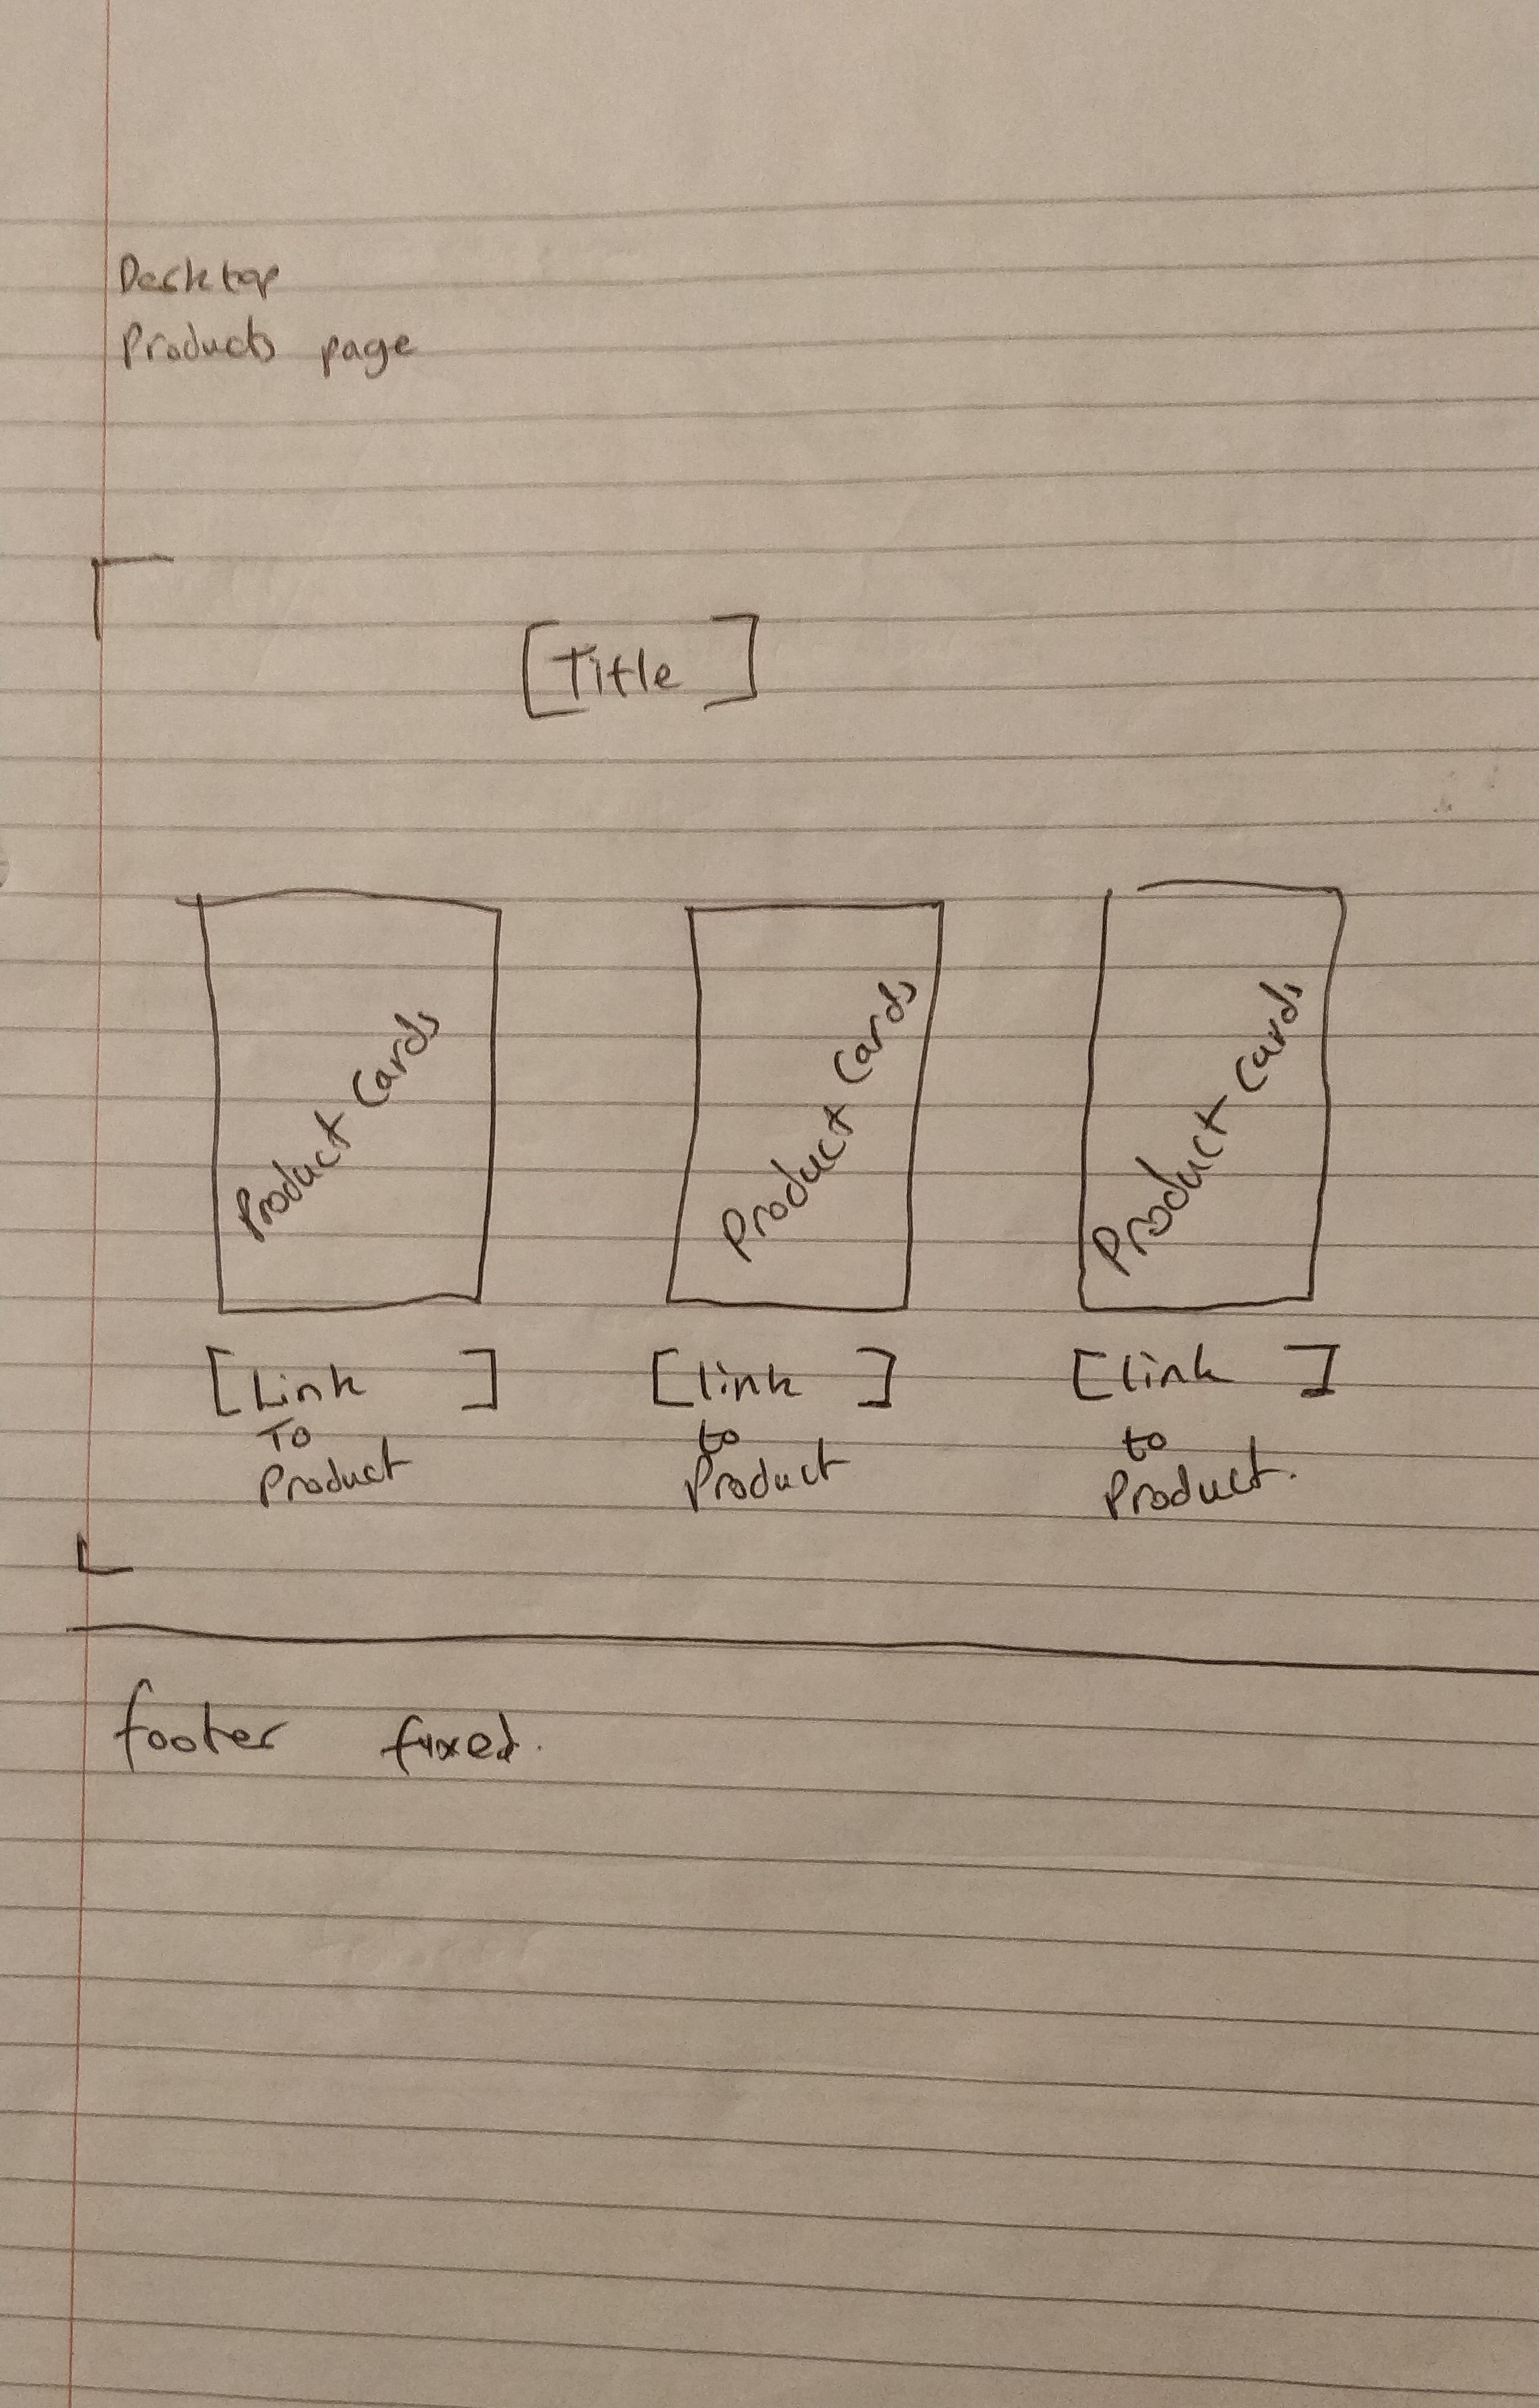 Desktop
Products page
[Title]
Product Cards
Product Cards
Product Cards
[Link]
To
Product
[link]
to
Product
[link]
to
Product.
footer fixed.